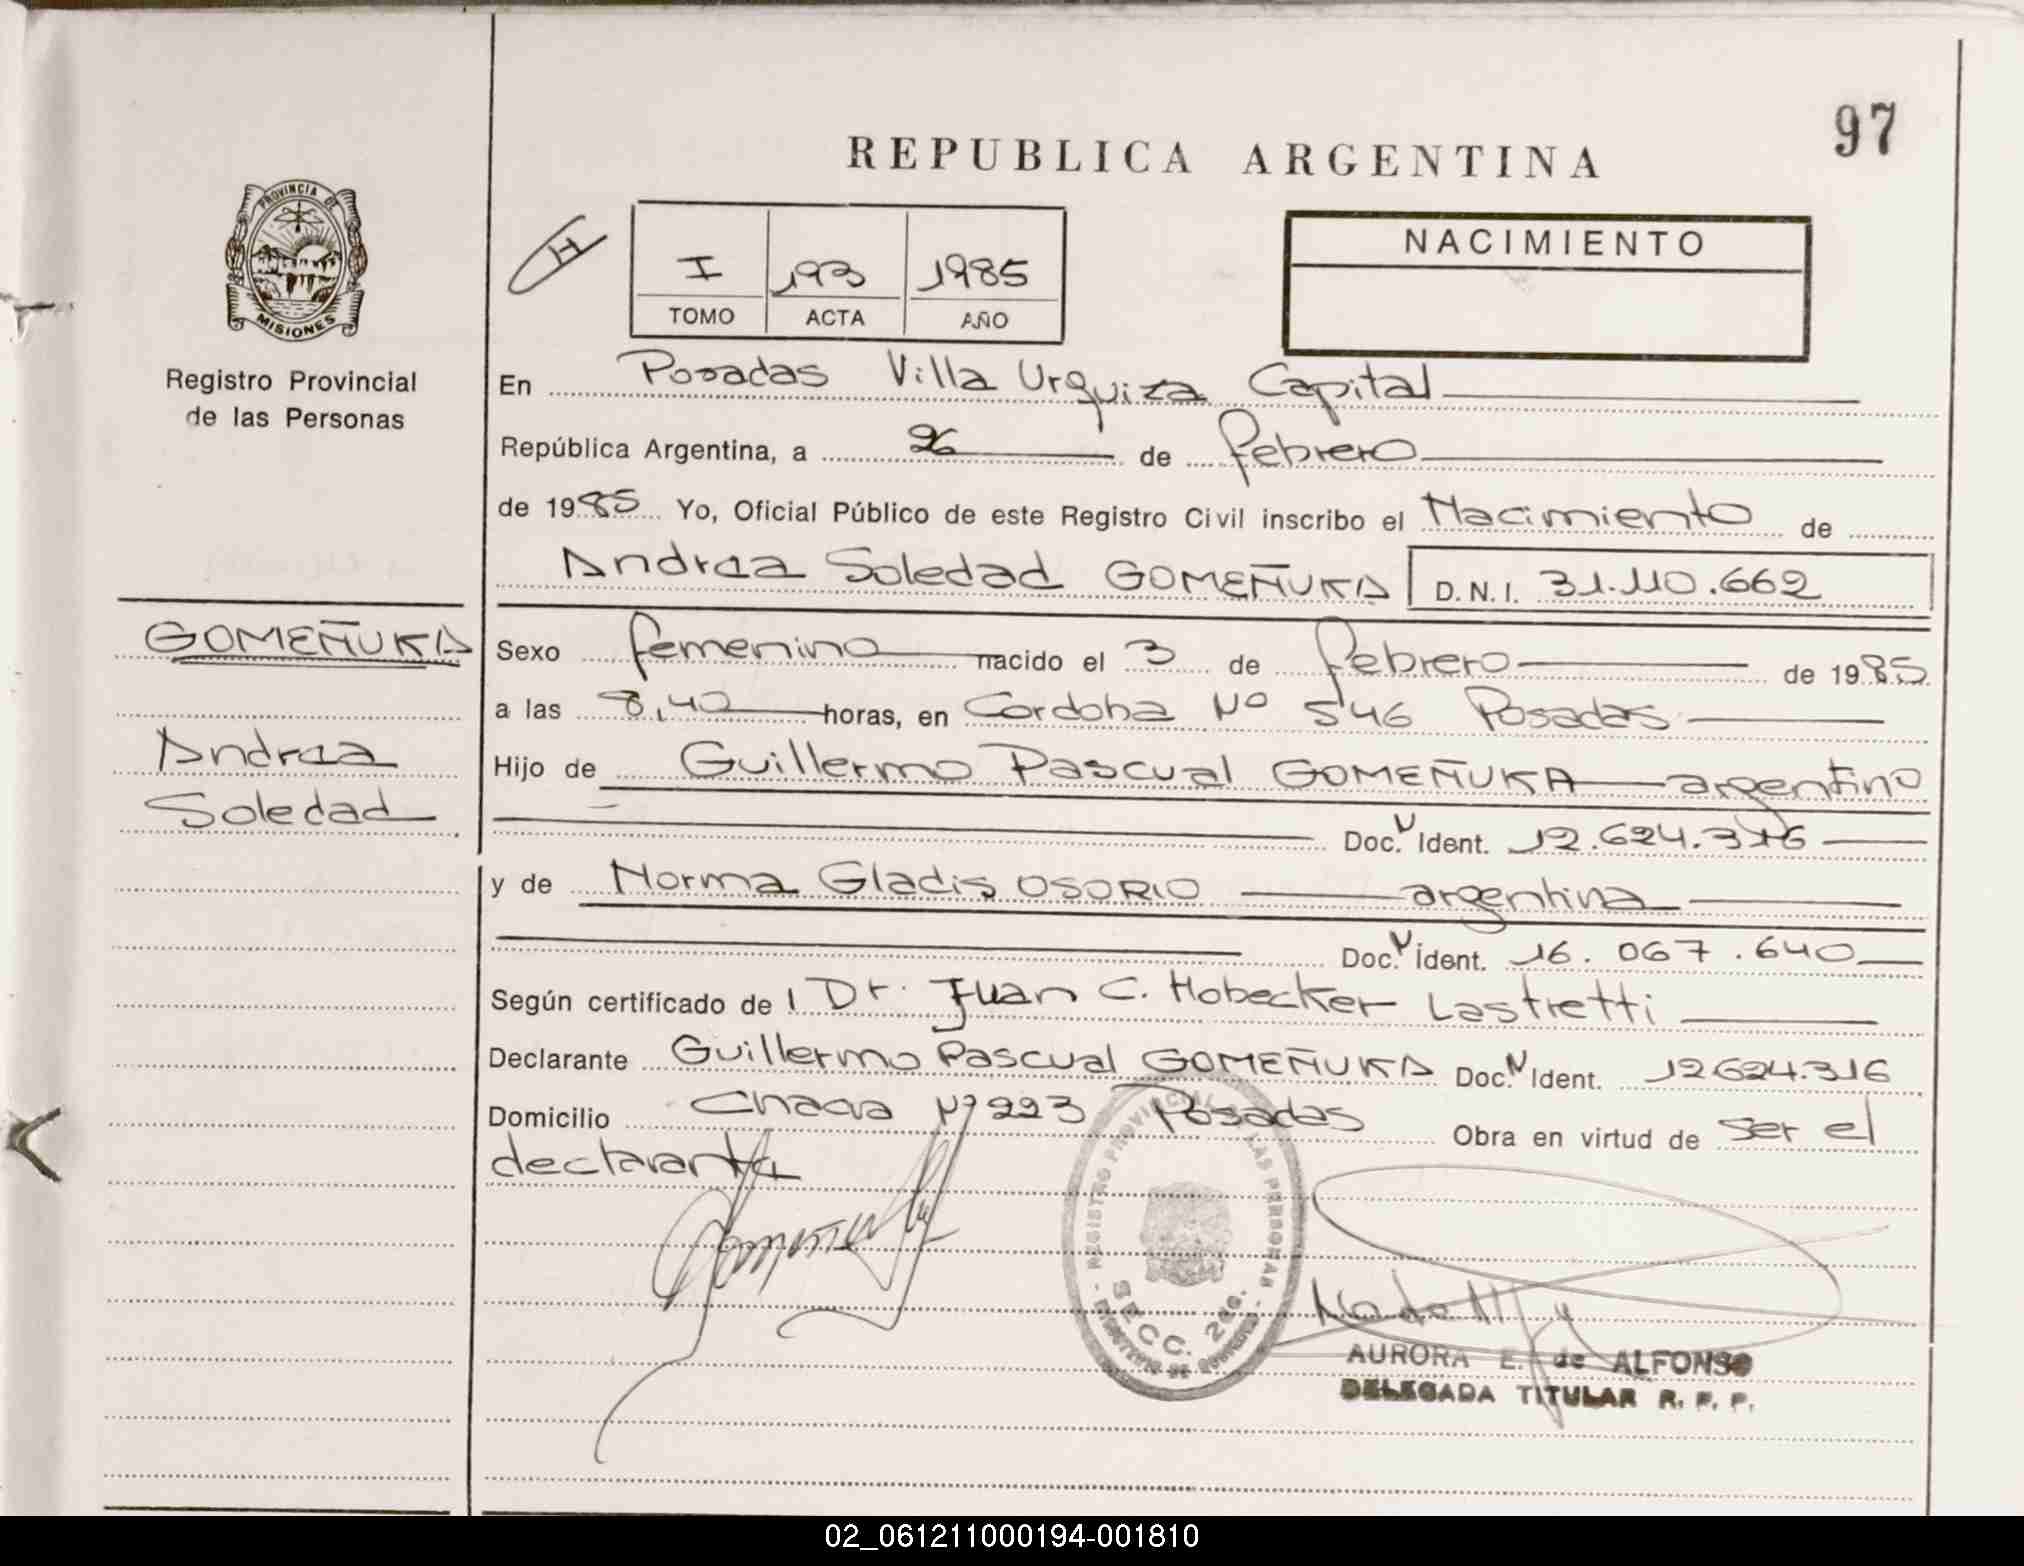 97
REPUBLICA ARGENTINA
PROVINCIA DE
MISIONES
Registro Provincial
de las Personas
H
I 193 1985
TOMO ACTA AÑO
NACIMIENTO
En Posadas Villa Urquiza Capital
República Argentina, a 26 de febrero
de 1985 Yo, Oficial Público de este Registro Civil inscribo el Nacimiento de
Andrea Soledad GOMEÑUKA D.N.I. 31.110.662
GOMEÑUKA
Andrea
Soledad
Sexo femenino nacido el 3 de febrero de 1985
a las 8,40 horas, en Cordoba Nº 546 Posadas
Hijo de Guillermo Pascual GOMEÑUKA argentino
Doc. N Ident. 12.624.316
y de Norma Gladis OSORIO argentina
Doc. N Ident. 16.067.640
Según certificado de Dr. Juan C. Hobecker Lastretti
Declarante Guillermo Pascual GOMEÑUKA Doc. N Ident. 12624.316
Domicilio Nº 223 Posadas Obra en virtud de ser el
declarante
REGISTRO PROVINCIAL LAS PERSONAS
SECC. 2
AURORA E. de ALFONSO
DELEGADA TITULAR R. P. P.
02_061211000194-001810